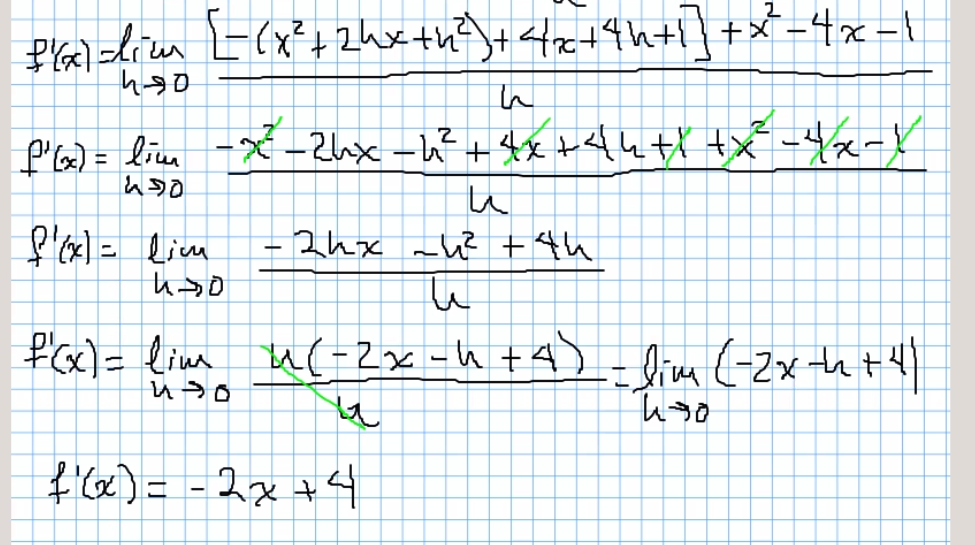 f'(x) = lim h→0 [-(x² + 2hx + h²) + 4x + 4h + 1] + x² - 4x - 1 / h
f'(x) = lim h→0 -x² - 2hx - h² + 4x + 4h + 1 + x² - 4x - 1 / h
f'(x) = lim h→0 -2hx - h² + 4h / h
f'(x) = lim h→0 h(-2x - h + 4) / h = lim h→0 (-2x - h + 4)
f'(x) = -2x + 4